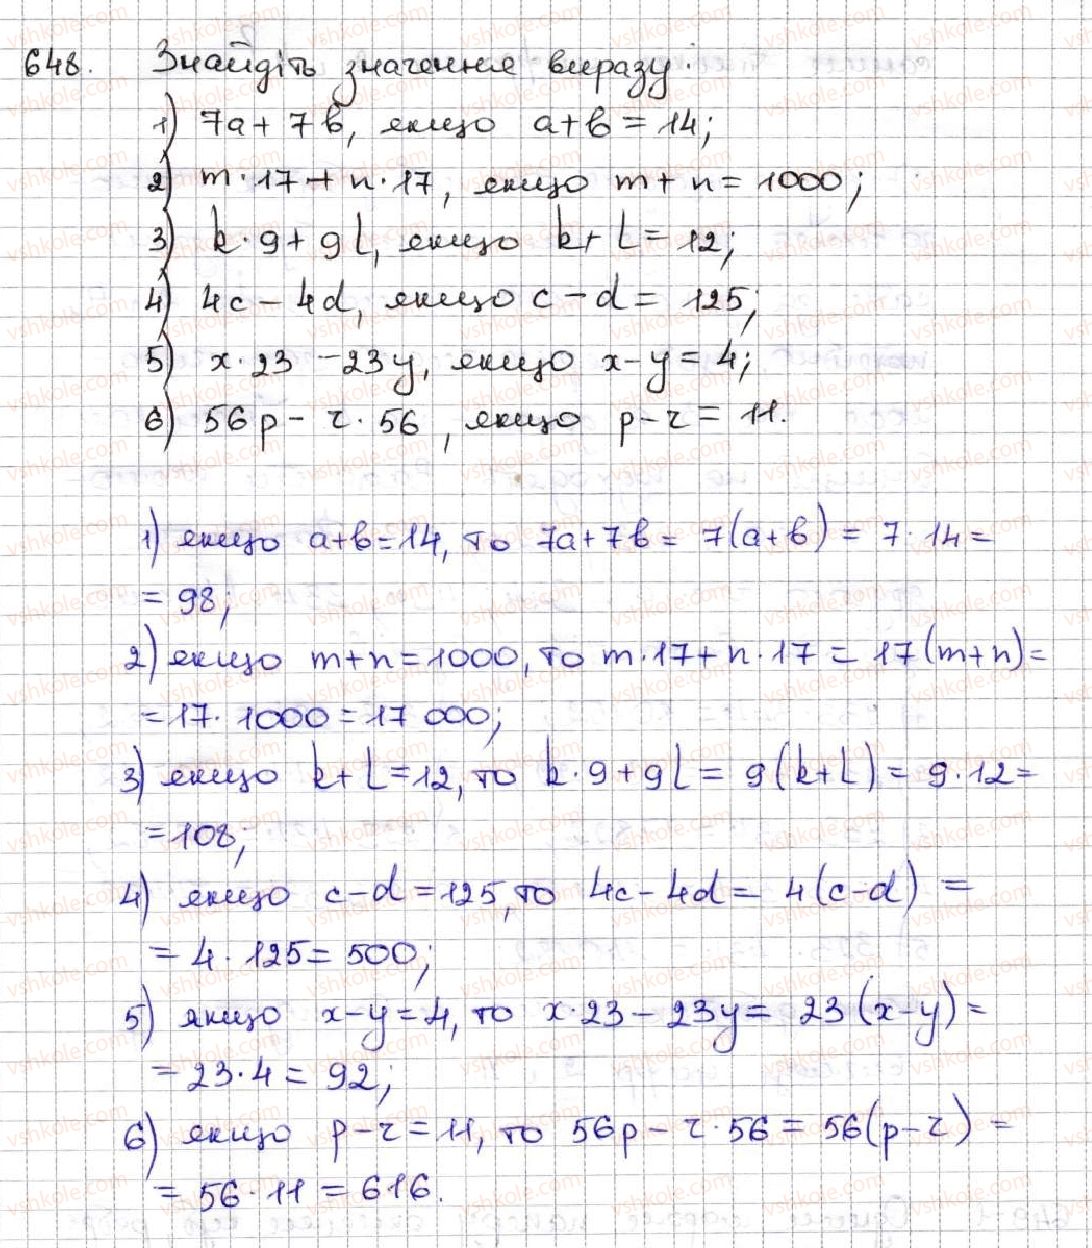 648. Знайдіть значення виразу:
1) 7a + 7b, якщо a + b = 14;
2) m · 17 + n · 17, якщо m + n = 1000;
3) k · 9 + 9l, якщо k + l = 12;
4) 4c − 4d, якщо c − d = 125;
5) x · 23 − 23y, якщо x − y = 4;
6) 56p − r · 56, якщо p − r = 11.
1) якщо a + b = 14, то 7a + 7b = 7(a + b) = 7 · 14 =
= 98;
2) якщо m + n = 1000, то m · 17 + n · 17 = 17(m + n) =
= 17 · 1000 = 17 000;
3) якщо k + l = 12, то k · 9 + 9l = 9(k + l) = 9 · 12 =
= 108;
4) якщо c − d = 125, то 4c − 4d = 4(c − d) =
= 4 · 125 = 500;
5) якщо x − y = 4, то x · 23 − 23y = 23(x − y) =
= 23 · 4 = 92;
6) якщо p − r = 11, то 56p − r · 56 = 56(p − r) =
= 56 · 11 = 616.
vshkole.com